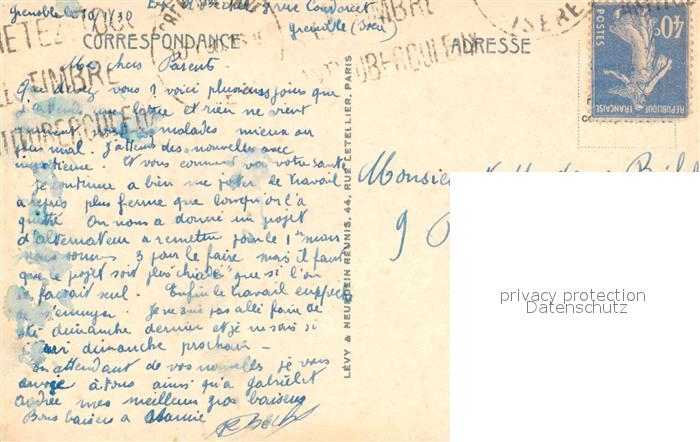 Grenoble le 10/1/30
Grenoble (Isère)
CORRESPONDANCE
ADRESSE
ACHETEZ TOUS
LE TIMBRE
ANTITUBERCULEUX
ISERE
POSTES
40c
REPUBLIQUE FRANÇAISE
Mes chers Parents
Que devenez vous ? voici plusieurs jours que
j'attends une lettre et rien ne vient
malades mieux ou
plus mal. J'attends des nouvelles avec
impatience. Et vous comment va votre santé
Je continue a bien me porter. le travail
a repris plus ferme que lorsqu'on l'a
quitté. On nous a donné un projet
d'alternateur a remettre pour le 1er mars
nous sommes 3 pour le faire mais il faut
que ce projet soit plus "chiadé" que si l'on
le faisait seul. Enfin le travail empêche
de s'ennuyer. Je ne suis pas allé faire de
ski dimanche dernier et je ne sais si
j'irai dimanche prochain -
En attendant de vos nouvelles je vous
envoie à tous ainsi qu'a Gabriel et
Andrée mes meilleurs gros baisers
Bons baisers a Mamie
LÉVY & NEURDEIN RÉUNIS, 44, RUE LETELLIER, PARIS
Monsieur
9
privacy protection
Datenschutz